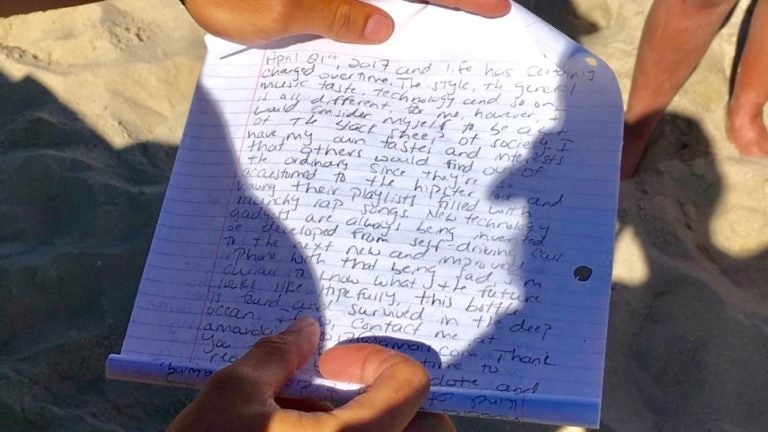 April 21st, 2017 and life has certainly
changed over time. The style, the general
music taste, technology and so on
is all different for me, however, I
would consider myself to be a bit
of the black sheep of society. I
have my own tastes and interests
that others would find out of
the ordinary since they're so
accustomed to the hipster look and
having their playlists filled with
raunchy rap songs. New technology
gadgets are always being invented
or developed from self-driving cars
to the next new and improved
iPhone. With that being said, I'm
curious to know what the future
looks like. Hopefully, this bottle
is found and survived in the deep
ocean. contact me at
gmail.com. Thank
you time to
and